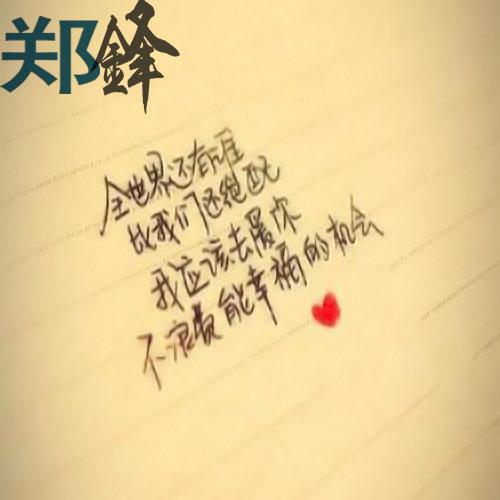 郑鋒
全世界还有谁
比我们还绝配
我应该去爱你
不浪费能幸福的机会